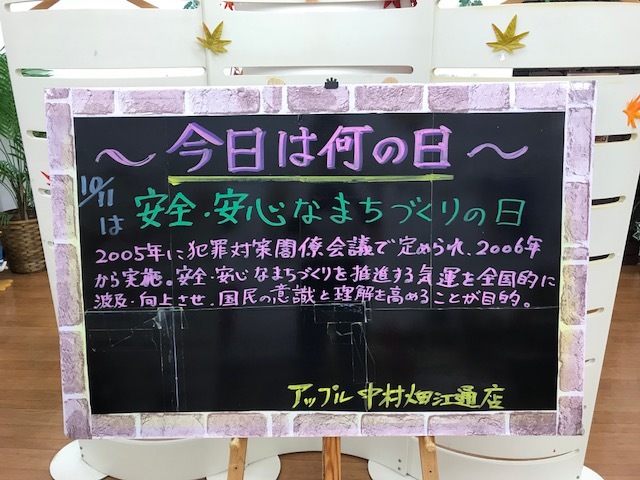 ～今日は何の日～
10/11は 安全・安心なまちづくりの日
2005年に犯罪対策閣僚会議で定められ、2006年
から実施。安全・安心なまちづくりを推進する気運を全国的に
波及・向上させ、国民の意識と理解を高めることが目的。
アップル中村畑江通店